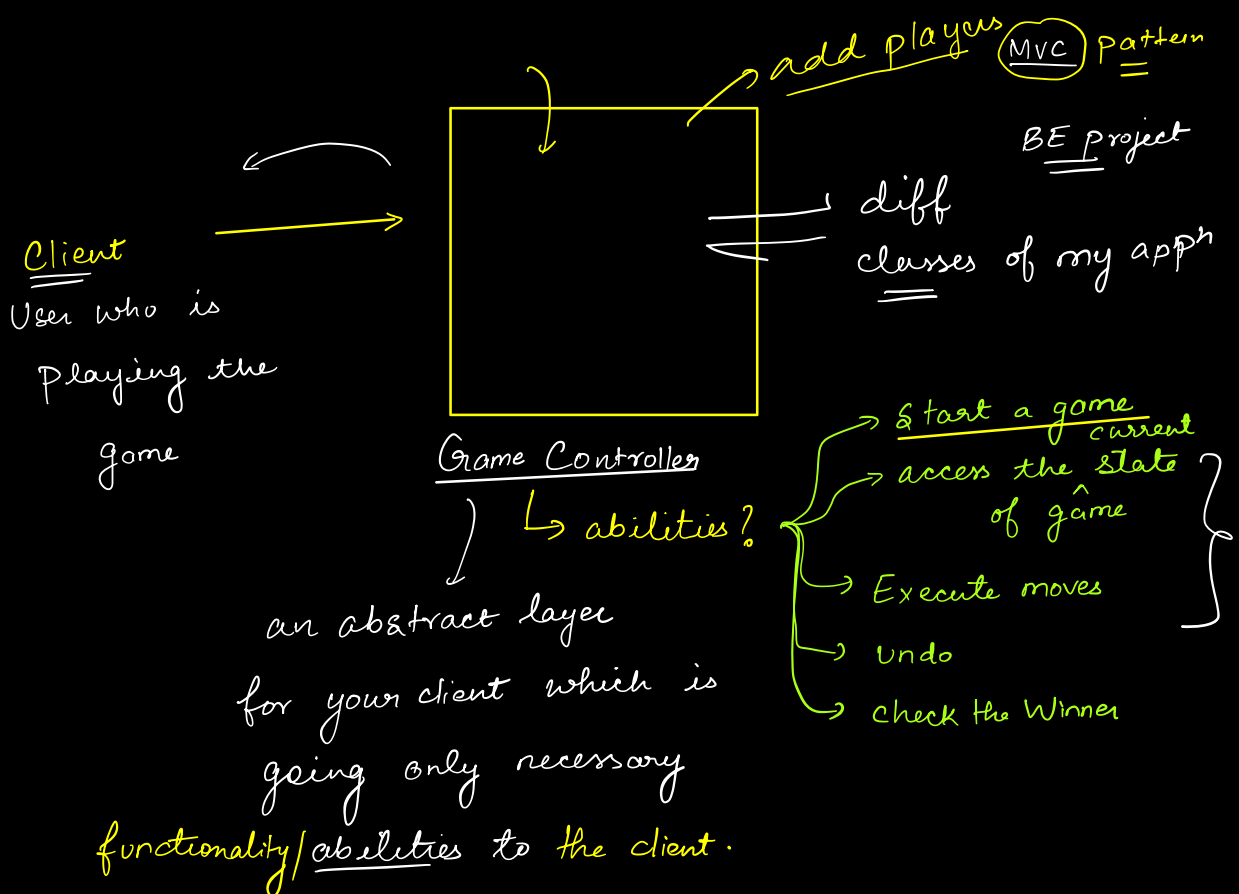 add players
MVC pattern
BE project
diff
classes of my appⁿ
Client
User who is
playing the
game
Game Controller
abilities?
Start a game
current
access the state
of game
Execute moves
undo
check the Winner
an abstract layer
for your client which is
going only necessary
functionality/abilities to the client.